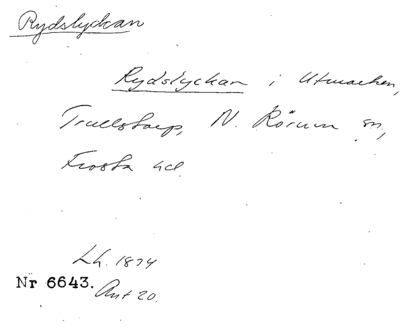 Rydslyckan
Rydslyckan i Utmarken,
Trulstorp, N. Rörum sn,
Frosta hd
Lh. 1874
Nr 6643.
Ant 20.